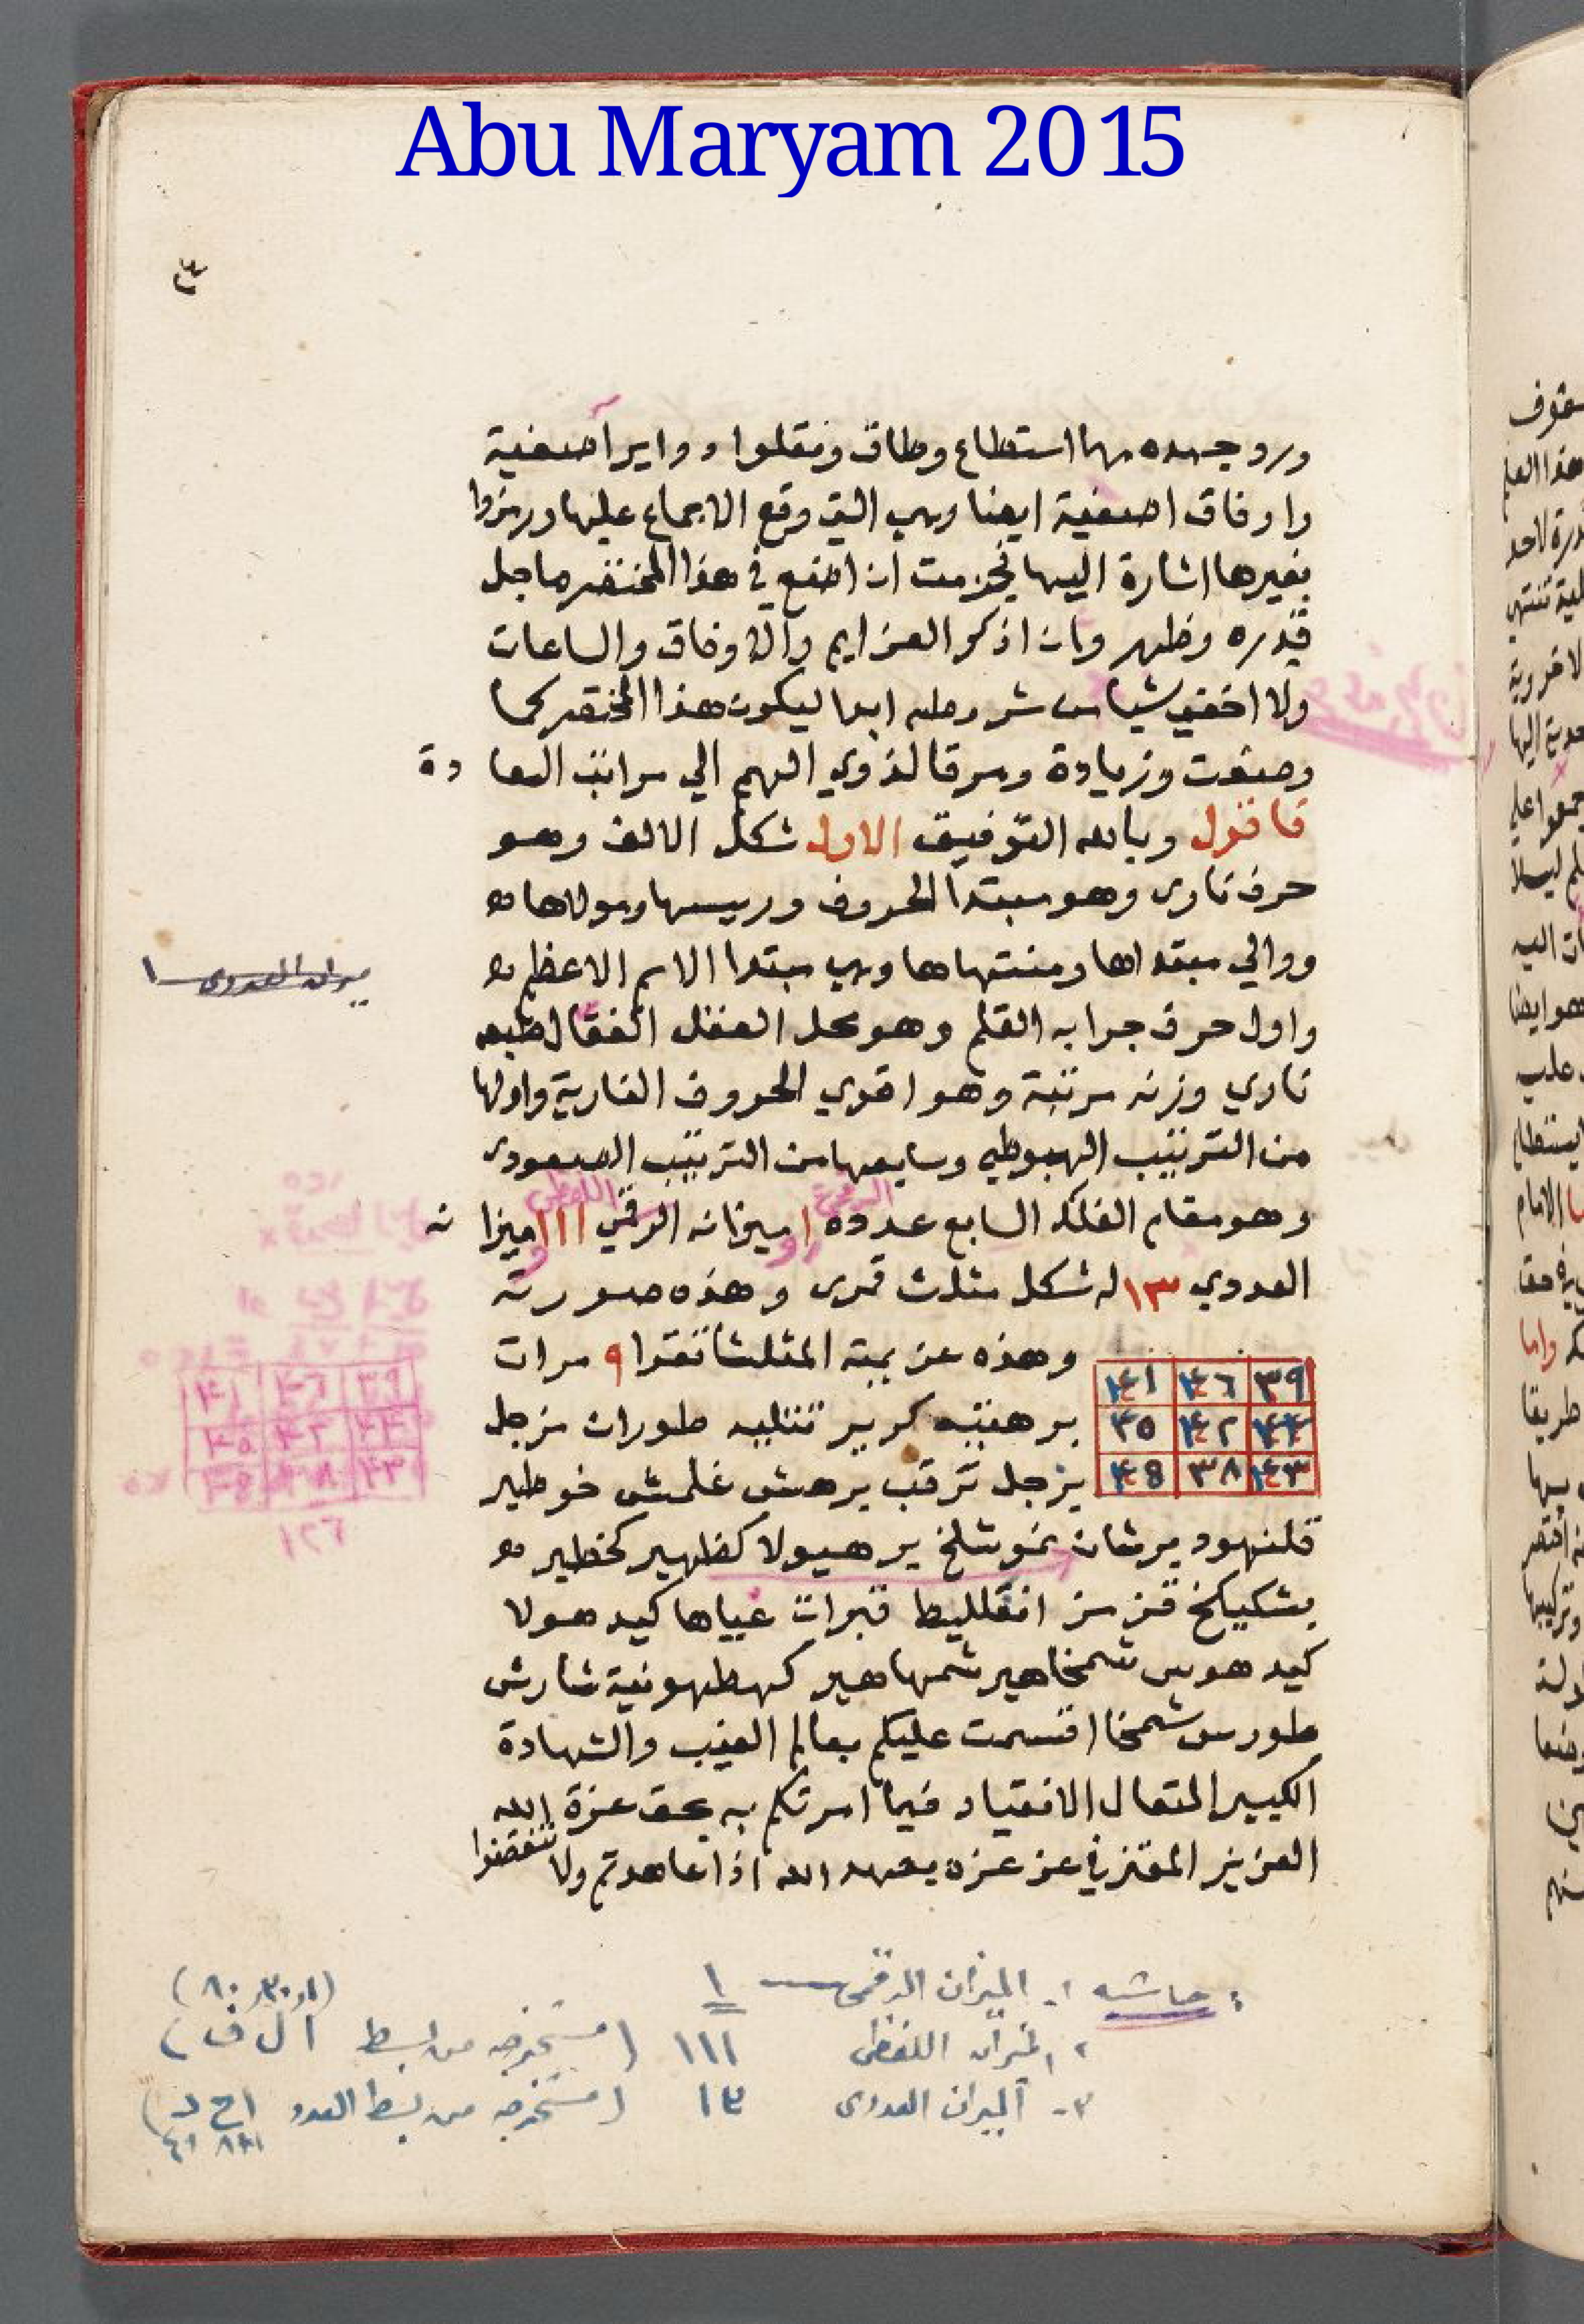 Abu Maryam 2015
٣
ورد جهده مهما استطاع وطاق ونقلوا دوايرا صفية
واوفاق اصفية ايضا وهي التي وقع الاجماع عليها ورمزوا
بغيرها اشارة اليها فجزمت ان اضع في هذا المختصر ما جل
قدره وظهر وبان اذكر العزايم والاوفاق والساعات
ولا اخفي شيا من شروطه ابدا ليكون هذا المختصر كما
وصفت وزيادة ومرقا لذوي الهمم الي مراتب السعا دة
فاقول وبالله التوفيق الاول شكل الالف وهو
حرف ناري وهو مبتدا الحروف ورييسها ومولاها
ووالي مبتداها ومنتهاها وهي مبتدا الاسم الاعظم
واول حرف جرا به القلم وهو محل العقل الفعال طبعه
ناري وزنه مرتبة وهو اقوي الحروف النارية واولها
من الترتيب الهبوطي وسابعها من الترتيب الصعودي
وهو مقام الفلك السابع عدده ١ ميزانه الرقمي ١١١ ميزا نه
العددي ١٣ له شكل مثلث قمري وهذه صورته
وهذه عزيمة المثلث تقرا ٩ مرات
٣٩ ٤٦ ٤١
٤٤ ٤٢ ٤٥
٤٣ ٣٨ ٤٥
برهتيه كرير تتليه طوران مزجل
بزجل ترقب برهش غلمش خوطير
قلنهود برشان نموشلخ برهيولا كظهير كخطير
بشكيلخ قزمز انغلليط قبرات غياها كيد هولا
كيد هوس شمخاهير شمهاهير كهطهونية شارش
طورس شمخا اقسمت عليكم بعالم الغيب والشهادة
الكبير المتعال الانقياد فيما امرتكم به بحق عزة الله
العزيز المعتز في عز عزه بعهد الله اذا عاهدتم ولا تنقضوا
حاشيه ١ـ الميزان الرقمى ١
(١، ٣٠، ٨٠)
٢ـ الميزان اللفظى ١١١ (مستخرجه من بسط ا ل ف)
٣ـ الميزان العددى ١٣ (مستخرجه من بسط العدد ا ح د)